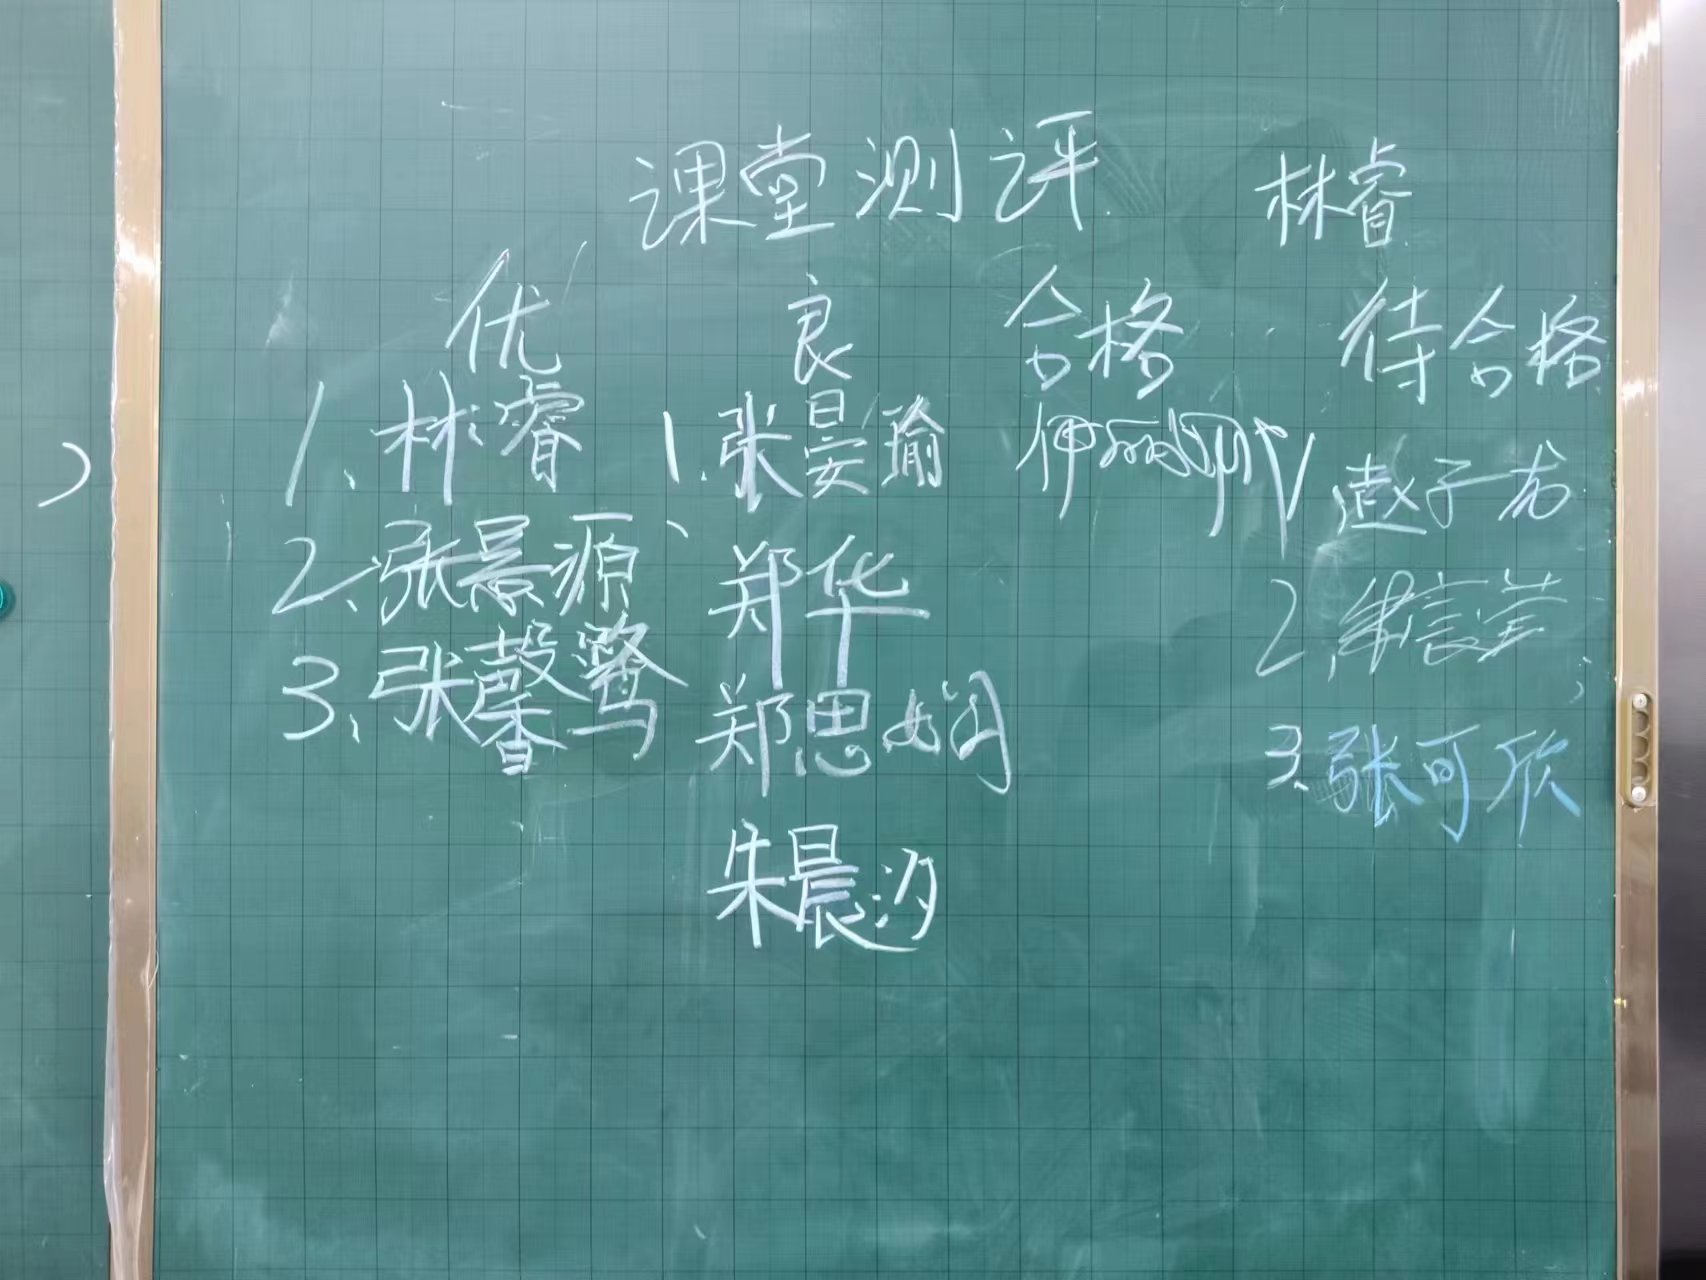 课堂测评 林睿
优 良 合格 待合格
1、林睿 1.张晏瑜 伊丽 赵子龙
2、张景源 郑华 2、朱宸
3、张馨鹭 郑思娴 3、张可欣
朱晨汐